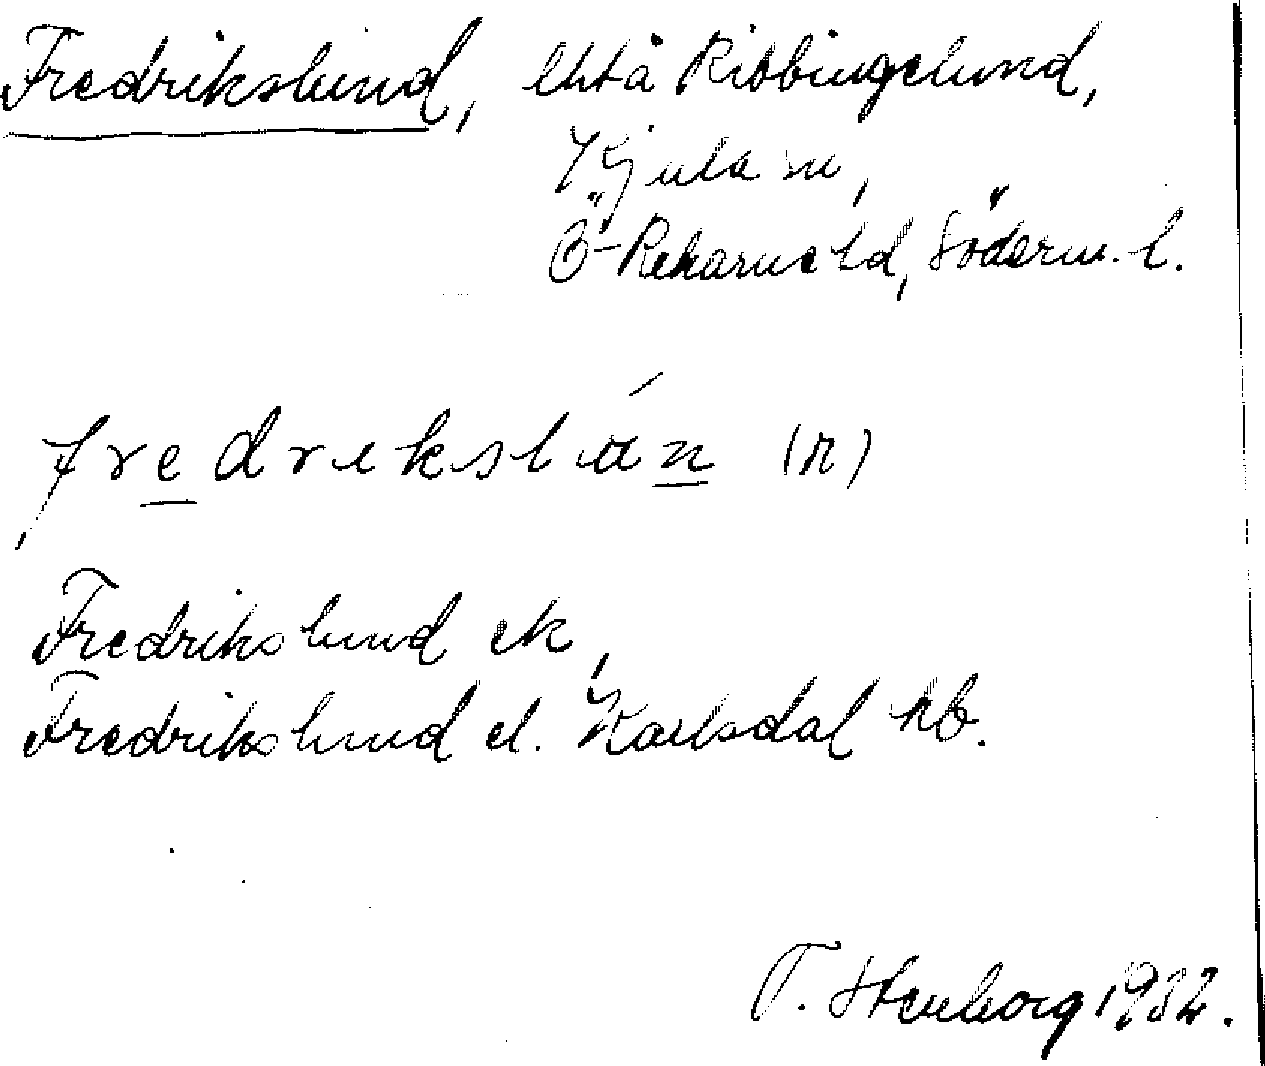 Fredrikslund, lht å Ribbingelund,
Kjula sn,
Ö-Rekarne hd, Söderm. l.
fredrekslán (n)
Fredrikslund ek,
Fredrikslund el. Karlsdal kb.
T. Stenborg 1932.